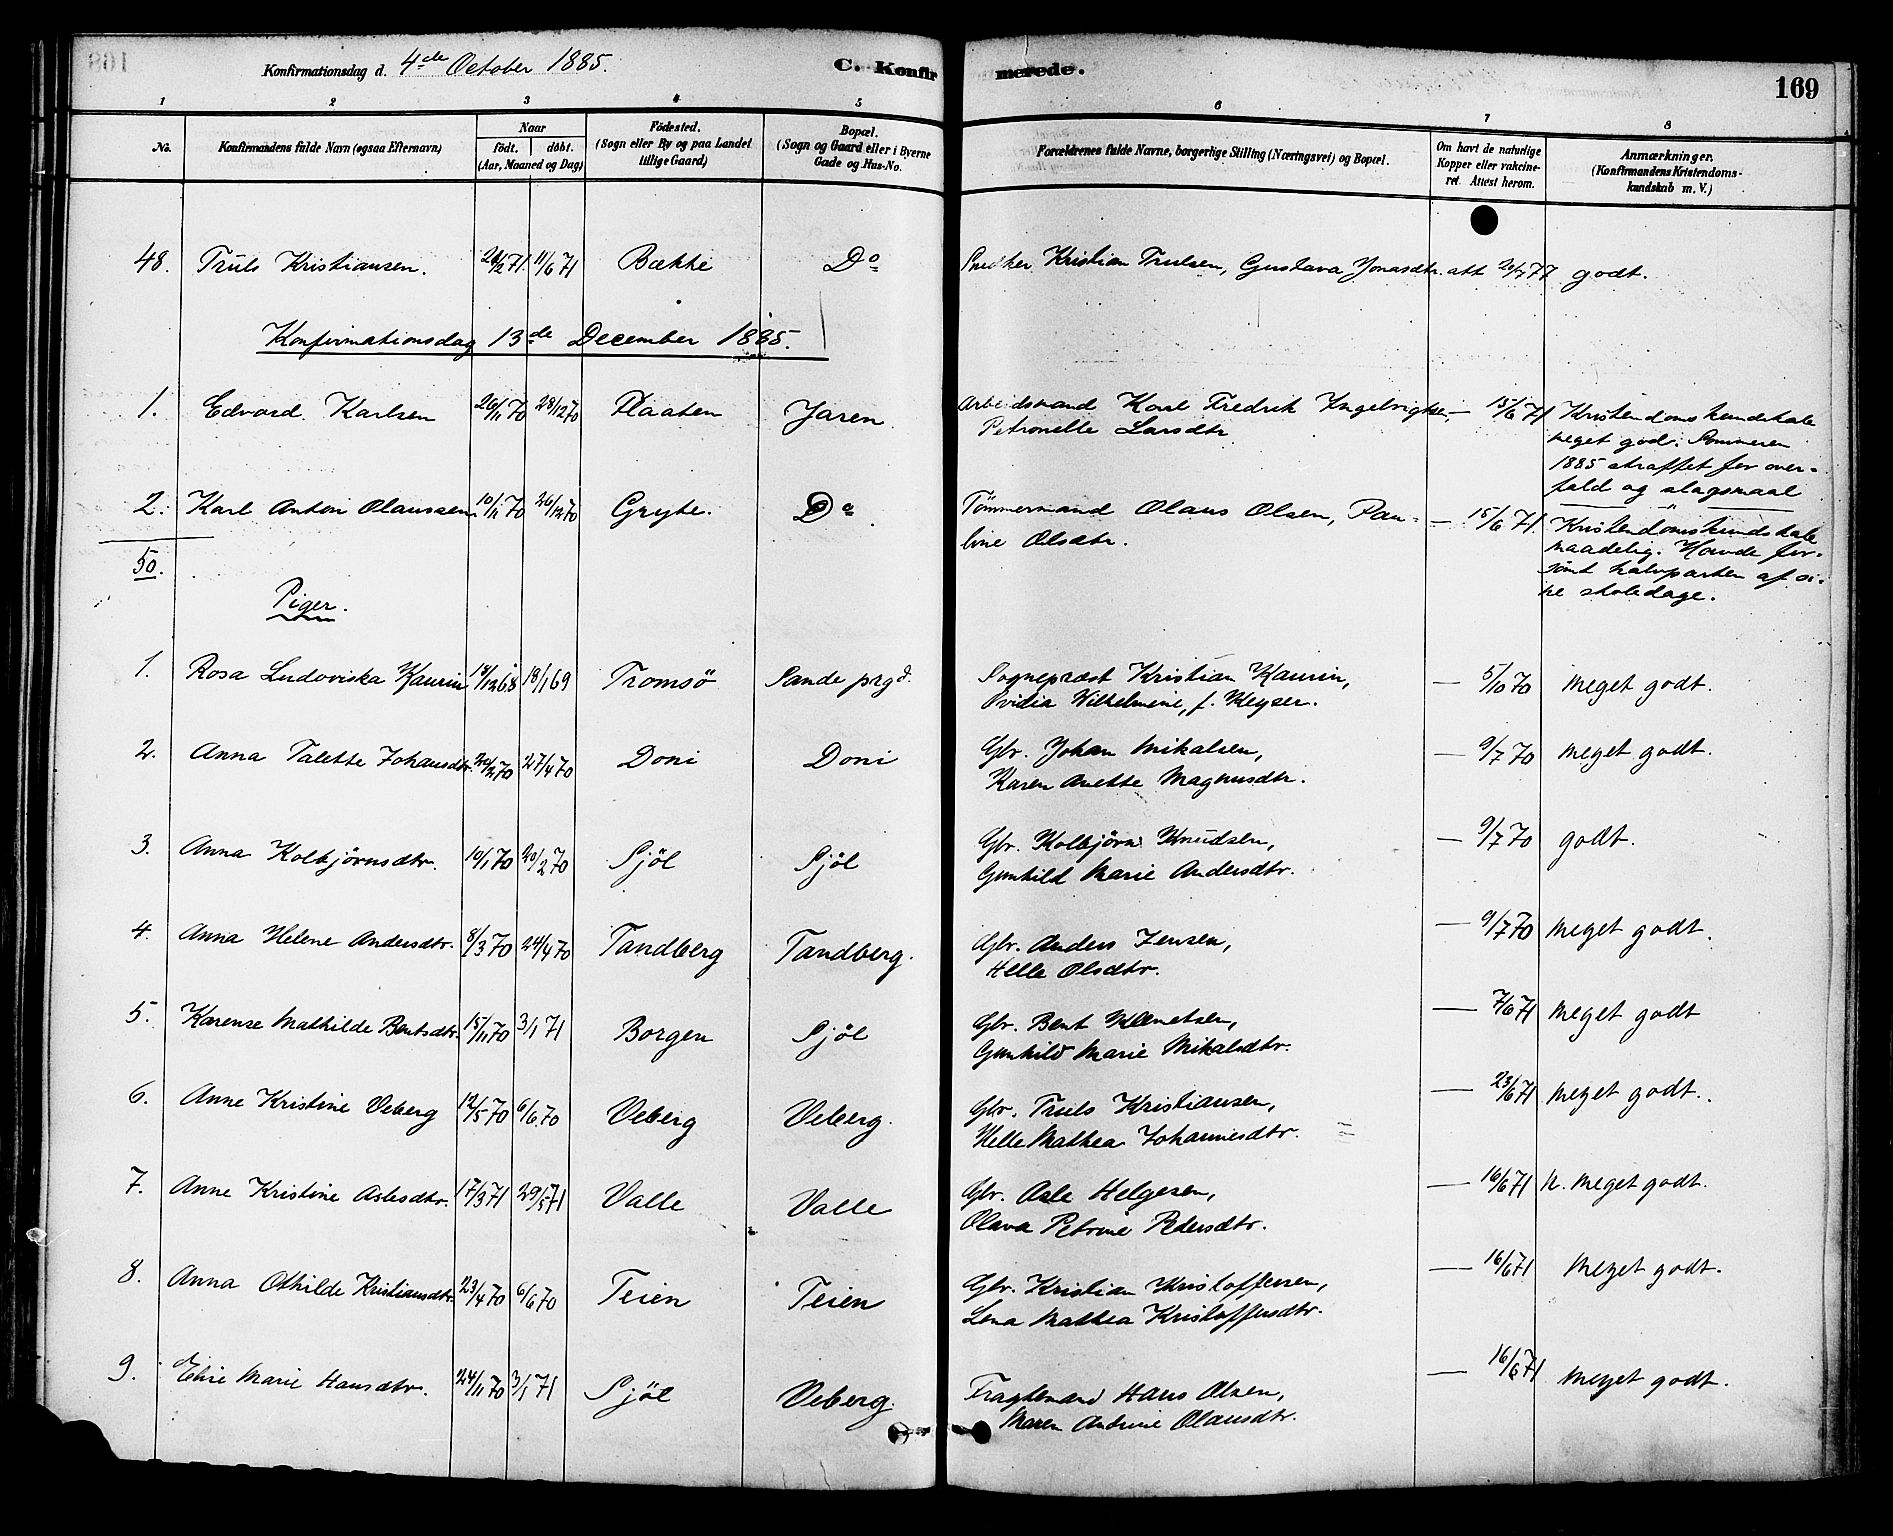 Konfirmationsdag d. 4de October 1885. C. Konfirmerede. 169
1 2 3 4 5 6 7 8
No. Konfirmandens fulde Navn (ogsaa Efternavn) Naar födt. döbt. (Aar, Maaned og Dag) Födested. (Sogn eller By og paa Landet tillige Gaard) Bopæl. (Sogn og Gaard eller i Byerne Gade og Hus-No. Forældrenes fulde Navne, borgerlige Stilling (Næringsvei) og Bopæl. Om havt de naturlige Kopper eller vakcineret. Attest herom. Anmærkninger. (Konfirmandens Kristendomskundskab m. V.)
48. Truls Kristiansen. 11/6 71 Bække Do Snedker Kristian Trulsen, Gustava Jonasdtr. att 20/7 77 godt.
Konfirmationsdag 13de December 1885.
1. Edvard Karlsen 26/11 70 28/12 70 Plaaten Jaren Arbeidsmand Karl Fredrik Ingelvigtsen, — 15/6 71 Kristendomskundskab
Petronelle Larsdtr meget god. Sommeren
1885 straffet for over-
fald og slagsmaal
2. Karl Anton Olaussen 10/11 70 26/12 70 Gryte. Do Tømmermand Olaus Olsen, Pau- — 15/6 71. Kristendomskundskab
line Olsdtr. maadelig. Havde for-
sømt halvparten af si-
ne skoledage.
50.
Piger.
1. Rosa Ludoviska Kaurin 18/12 68 18/1 69 Tromsö Sande prgd. Sognepræst Kristian Kaurin, — 5/10 70 meget godt.
Ovidia Wilhelmine, f. Keyser.
2. Anna Talette Johansdtr. 27/4 70 Doni Doni Gbr. Johan Mikalsen, — 9/7 70 meget godt.
Karen Anette Magnusdtr.
3. Anna Kolbjørnsdtr. 10/1 70 20/2 70 Sjöl Sjöl Gbr. Kolbjørn Knudsen, — 9/7 70 godt.
Gunhild Marie Andersdtr.
4. Anna Helene Andersdtr. 8/3 70 24/4 70 Tandberg Tandberg. Gbr. Anders Jensen, — 9/7 70 meget godt.
Helle Olsdtr.
5. Karense Mathilde Bentsdtr. 15/11 70 3/1 71 Borgen Sjöl Gbr. Bent Klemetsen, — 7/6 71 meget godt
Gunhild Marie Mikalsdtr.
6. Anne Kristine Veberg 12/5 70 6/6 70 Veberg Veberg. Gbr. Truls Kristiansen, — 23/6 71 meget godt.
Helle Mathea Johannesdtr.
7. Anne Kristine Aslesdtr. 17/3 71 29/5 71 Valle Valle Gbr. Asle Helgesen, — 16/6 71 N. meget godt.
Olava Petrine Pedersdtr.
8. Anna Othilde Kristiansdtr. 23/4 70 6/6 70 Teien Teien Gbr. Kristian Kristoffersen, — 16/6 71 meget godt.
Lena Mathea Kristoffersdtr.
9. Elise Marie Hansdtr. 24/11 70 3/1 71 Sjöl Veberg. Fragtemand Hans Olsen, — 16/6 71 meget godt.
Maren Andrine Olausdtr.